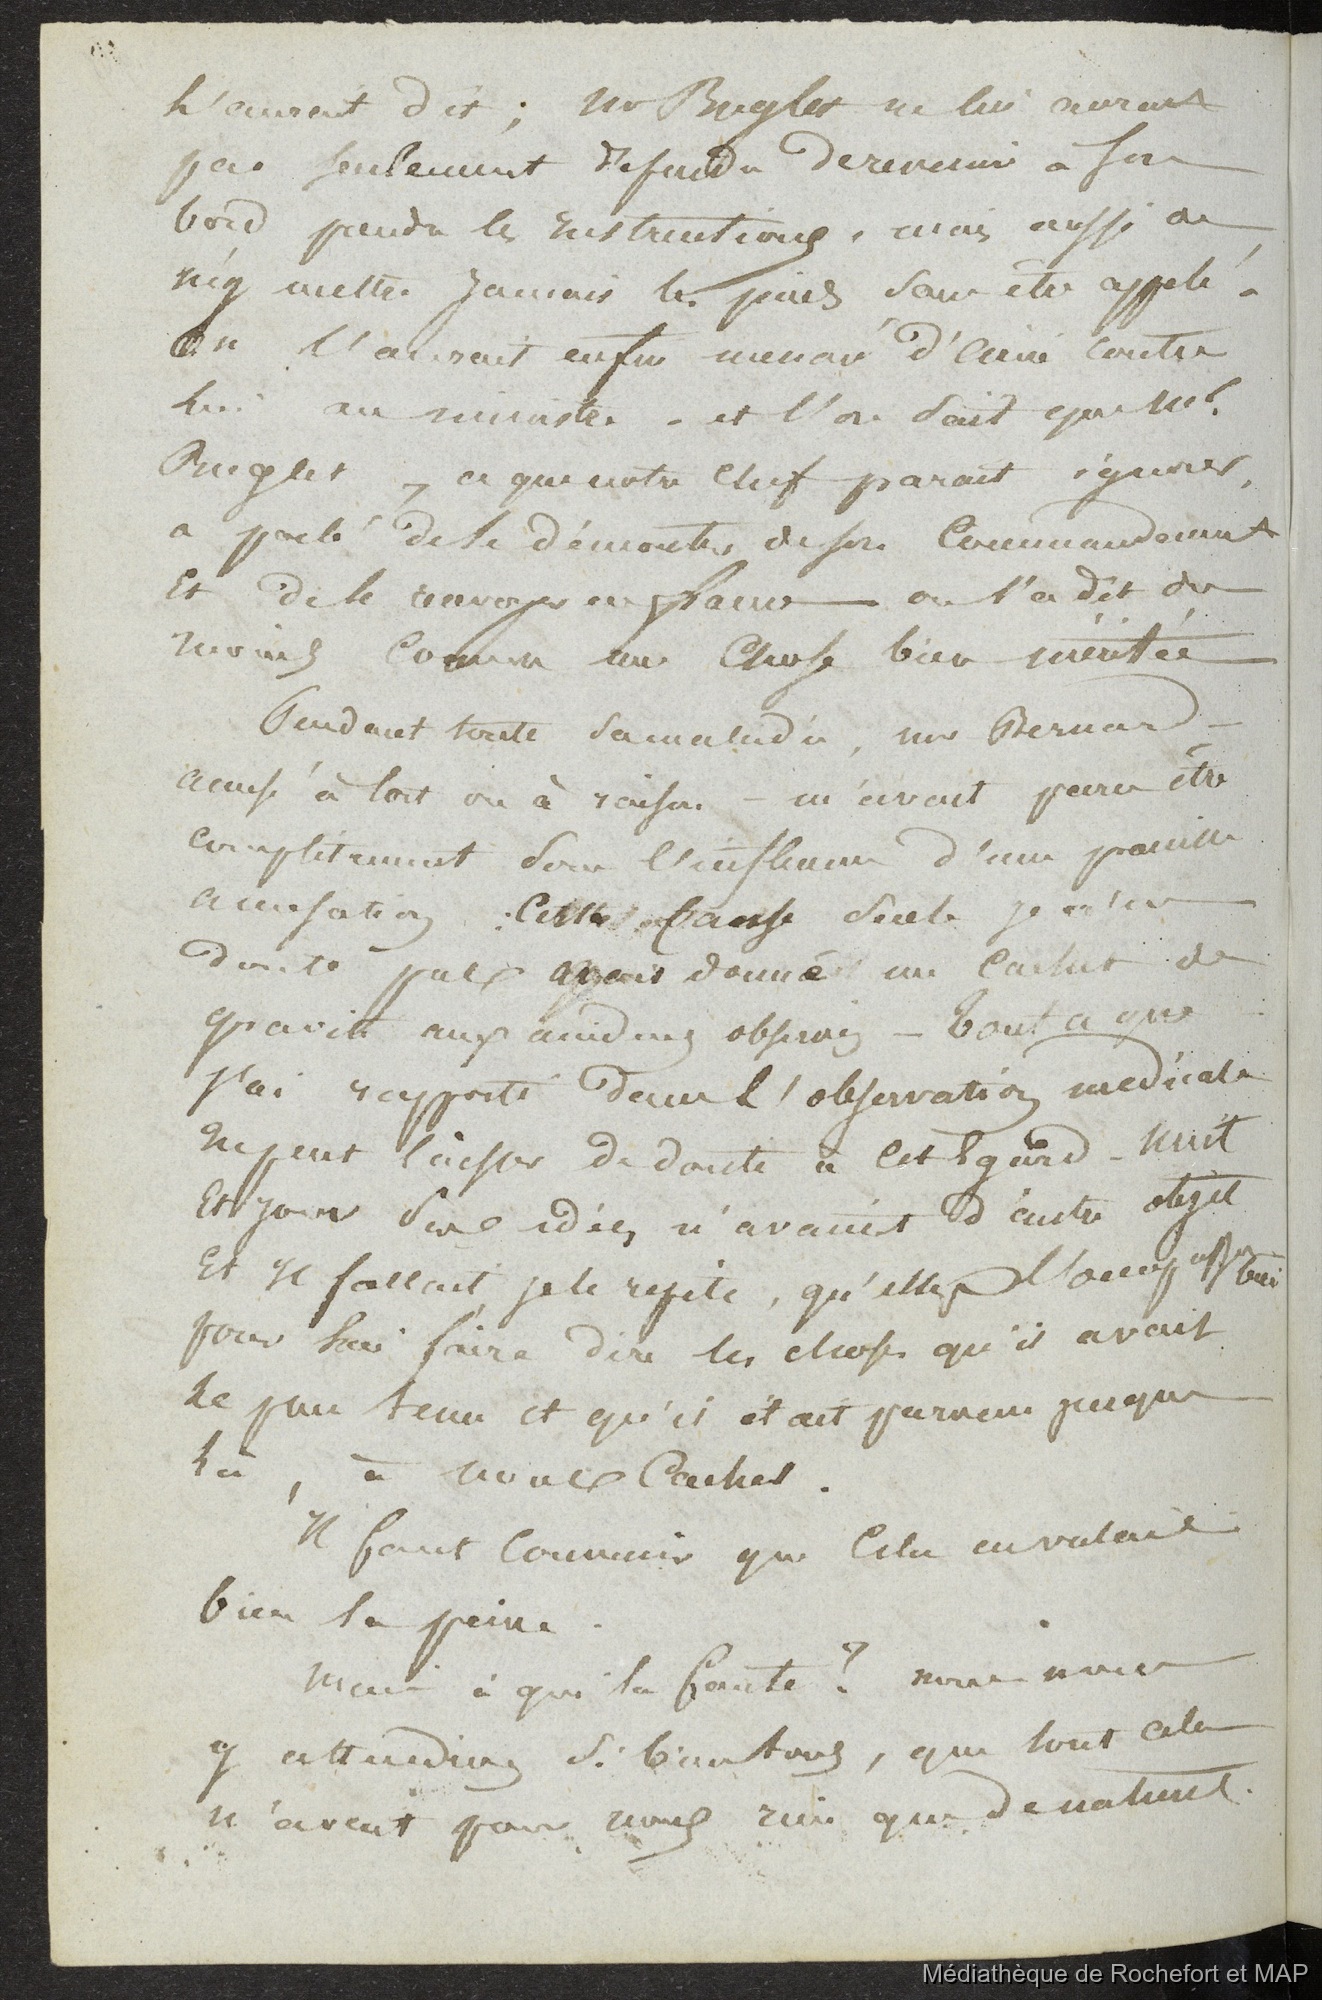 l'aurait dit ; mr Buglet ne lui aurait
pas seulement défendu de revenir à son
bord prendre les instructions, mais aussi de
n'y mettre jamais les pieds sans être appelé -
on l'aurait enfin menacé d'écrire contre
lui au ministre - et l'on sait que Mr.
Buglet, ce que notre chef parait ignorer,
a parlé de le démonter de son Commandement
Et de le renvoyer en france — on l'a dit du
moins comme une chose bien méritée —
Pendant toute sa maladie, mr Bernard -
accusé à tort ou à raison - m'avait paru être
complètement sous l'influence d'une pareille
accusation. Cette cause seule je n'en
doute pas ayant donné un cachet de
gravité aux accidens observés - tout ce que
j'ai rapporté dans l'observation medicale
ne peut laisser de doute à cet égard - Nuit
Et jour ses idées n'avaient d'autre objet
Et il fallait, je le repete, qu'elles l'occupassent bien
pour lui faire dire les choses qu'il avait
le peu tenu et qu'il était parvenu jusque
là, à nous cacher.
Il faut convenir que cela en valait
bien la peine.
Mais à qui la faute ? nous nous
y attendions si bien tous, que tout cela
n'avait pour nous rien que de naturel.
Médiathèque de Rochefort et MAP